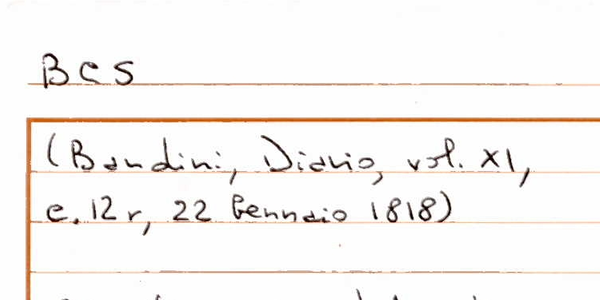 BCS
(Bandini, Diario, vol. XI,
c. 12 r, 22 Gennaio 1818)